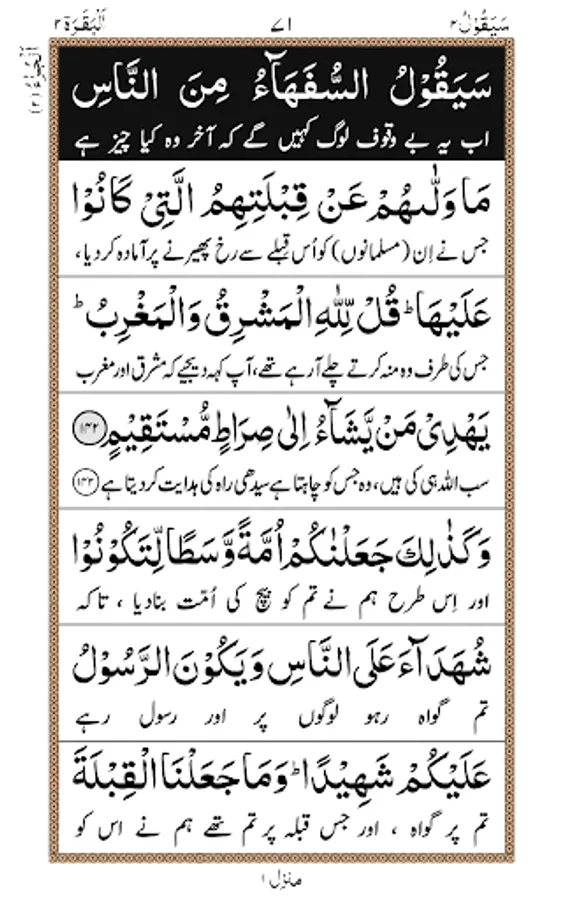 سَيَقُوْلُ ۲
۷۱
اَلْبَقَرَة ۲
اَلْجُزْءُ (۲)
سَيَقُوْلُ السُّفَهَآءُ مِنَ النَّاسِ
اب یہ بے وقوف لوگ کہیں گے کہ آخر وہ کیا چیز ہے
مَا وَلّٰىهُمْ عَنْ قِبْلَتِهِمُ الَّتِیْ كَانُوْا
جس نے اِن (مسلمانوں) کو اُس قبلے سے رخ پھیرنے پر آمادہ کردیا،
عَلَيْهَا ؕ قُلْ لِّلّٰهِ الْمَشْرِقُ وَالْمَغْرِبُ ؕ
جس کی طرف وہ منہ کرتے چلے آرہے تھے، آپ کہہ دیجیے کہ مشرق اور مغرب
يَهْدِیْ مَنْ يَّشَآءُ اِلٰى صِرَاطٍ مُّسْتَقِيْمٍ ۝۱۴۲
سب اللہ ہی کی ہیں، وہ جس کو چاہتا ہے سیدھی راہ کی ہدایت کردیتا ہے ۝۱۴۲
وَكَذٰلِكَ جَعَلْنٰكُمْ اُمَّةً وَّسَطًا لِّتَكُوْنُوْا
اور اِس طرح ہم نے تم کو بیچ کی اُمّت بنادیا ، تاکہ
شُهَدَآءَ عَلَى النَّاسِ وَيَكُوْنَ الرَّسُوْلُ
تم گواہ رہو لوگوں پر اور رسول رہے
عَلَيْكُمْ شَهِيْدًا ؕ وَمَا جَعَلْنَا الْقِبْلَةَ
تم پر گواہ ، اور جس قبلہ پر تم تھے ہم نے اس کو
منزل ۱